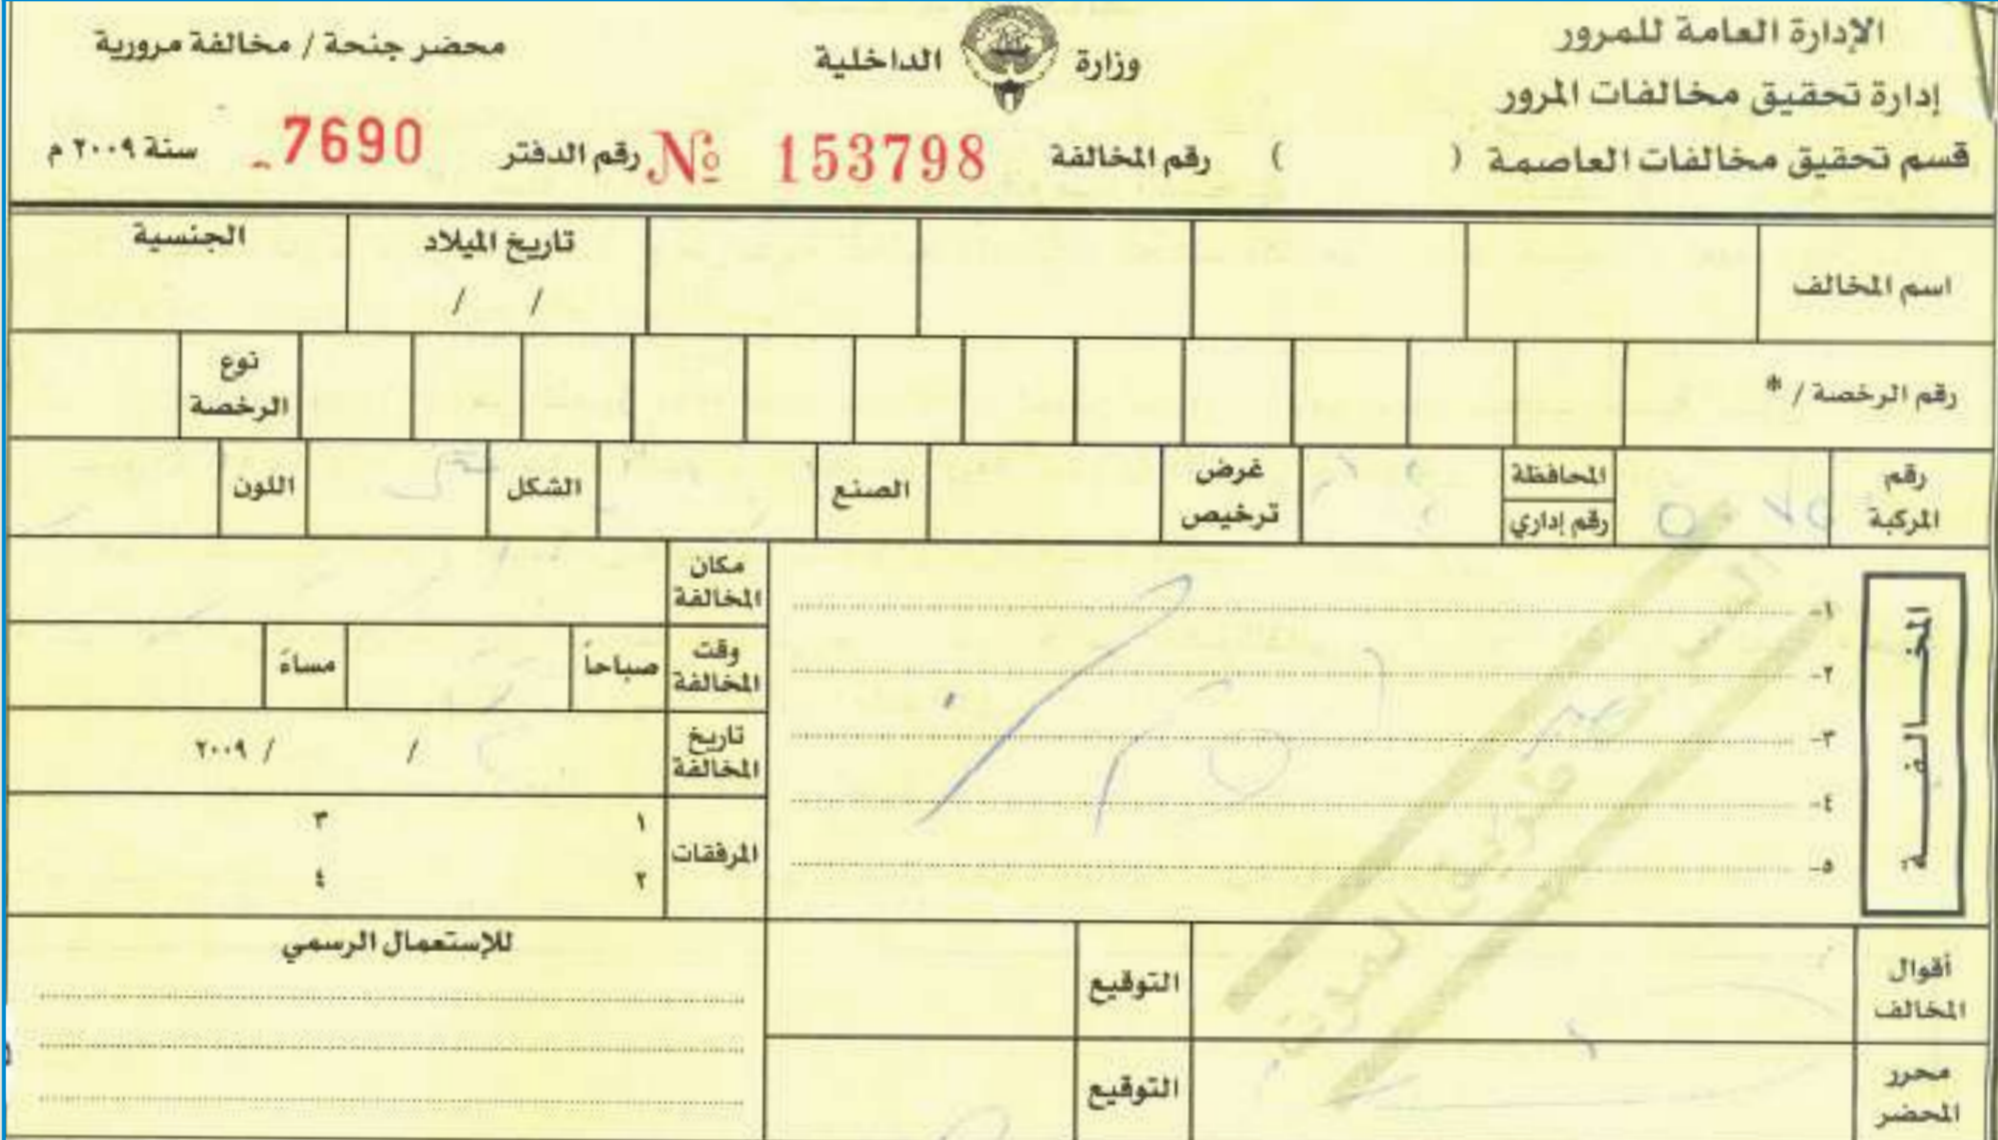 الإدارة العامة للمرور
إدارة تحقيق مخالفات المرور
قسم تحقيق مخالفات العاصمة ( )
وزارة الداخلية
محضر جنحة / مخالفة مرورية
رقم المخالفة № 153798 رقم الدفتر 7690 سنة ٢٠٠٩ م
اسم المخالف تاريخ الميلاد الجنسية
/ /
رقم الرخصة / * نوع الرخصة
رقم المركبة المحافظة غرض ترخيص الصنع الشكل اللون
رقم إداري
المخالفة
١-
٢-
٣-
٤-
٥-
مكان المخالفة
وقت المخالفة صباحاً مساءً
تاريخ المخالفة / / ٢٠٠٩
المرفقات ١ ٣
٢ ٤
أقوال المخالف التوقيع
محرر المحضر التوقيع
للإستعمال الرسمي